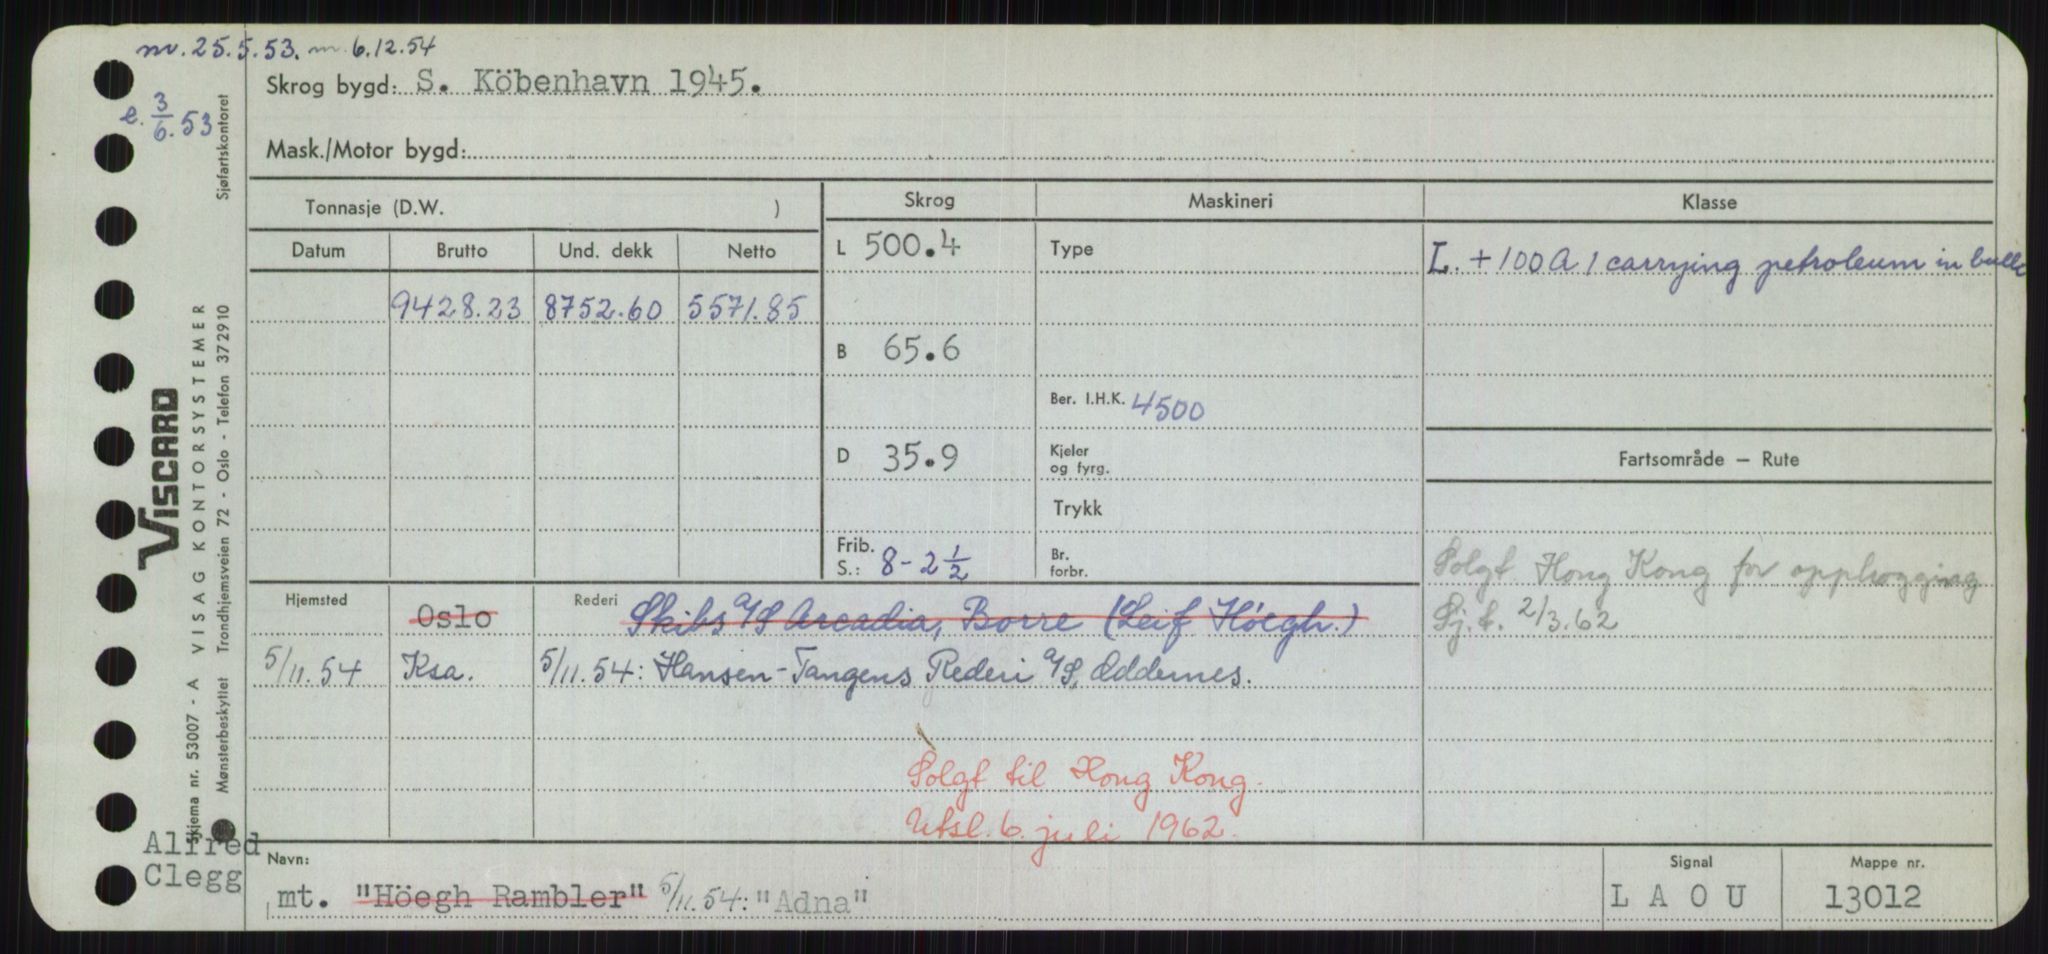 nr. 25.5.53. m. 6.12.54
e. 3/6.53
Skrog bygd: S. Köbenhavn 1945.
Mask./Motor bygd:
Tonnasje (D.W. )
Skrog
Maskineri
Klasse
Datum Brutto Und. dekk Netto
L 500.4
Type
L. + 100 A 1 carrying petroleum in bulk
9428.23 8752.60 5571.85
B 65.6
Ber. I.H.K. 4500
D 35.9
Kjeler
og fyrg.
Fartsområde — Rute
Trykk
Frib.
S.: 8 - 2 1/2
Br.
forbr.
Solgt Hong Kong for opphogging
Sj.t. 2/3.62
Hjemsted Oslo
Rederi Skibs A/S Arcadia, Borre (Leif Höegh.)
5/11.54 Ksa. 5/11.54: Hansen-Tangens Rederi A/S, Oddernes.
Solgt til Hong Kong.
Utsl. 6. juli 1962.
Navn:
mt. "Höegh Rambler" 5/11.54: "Adna"
Signal
L A O U
Mappe nr.
13012
Alfred
Clegg
VISCARD
VISAG KONTORSYSTEMER
Skjema nr. 53007 - A
Mønsterbeskyttet Trondhjemsveien 72 - Oslo - Telefon 372910
Sjøfartskontoret